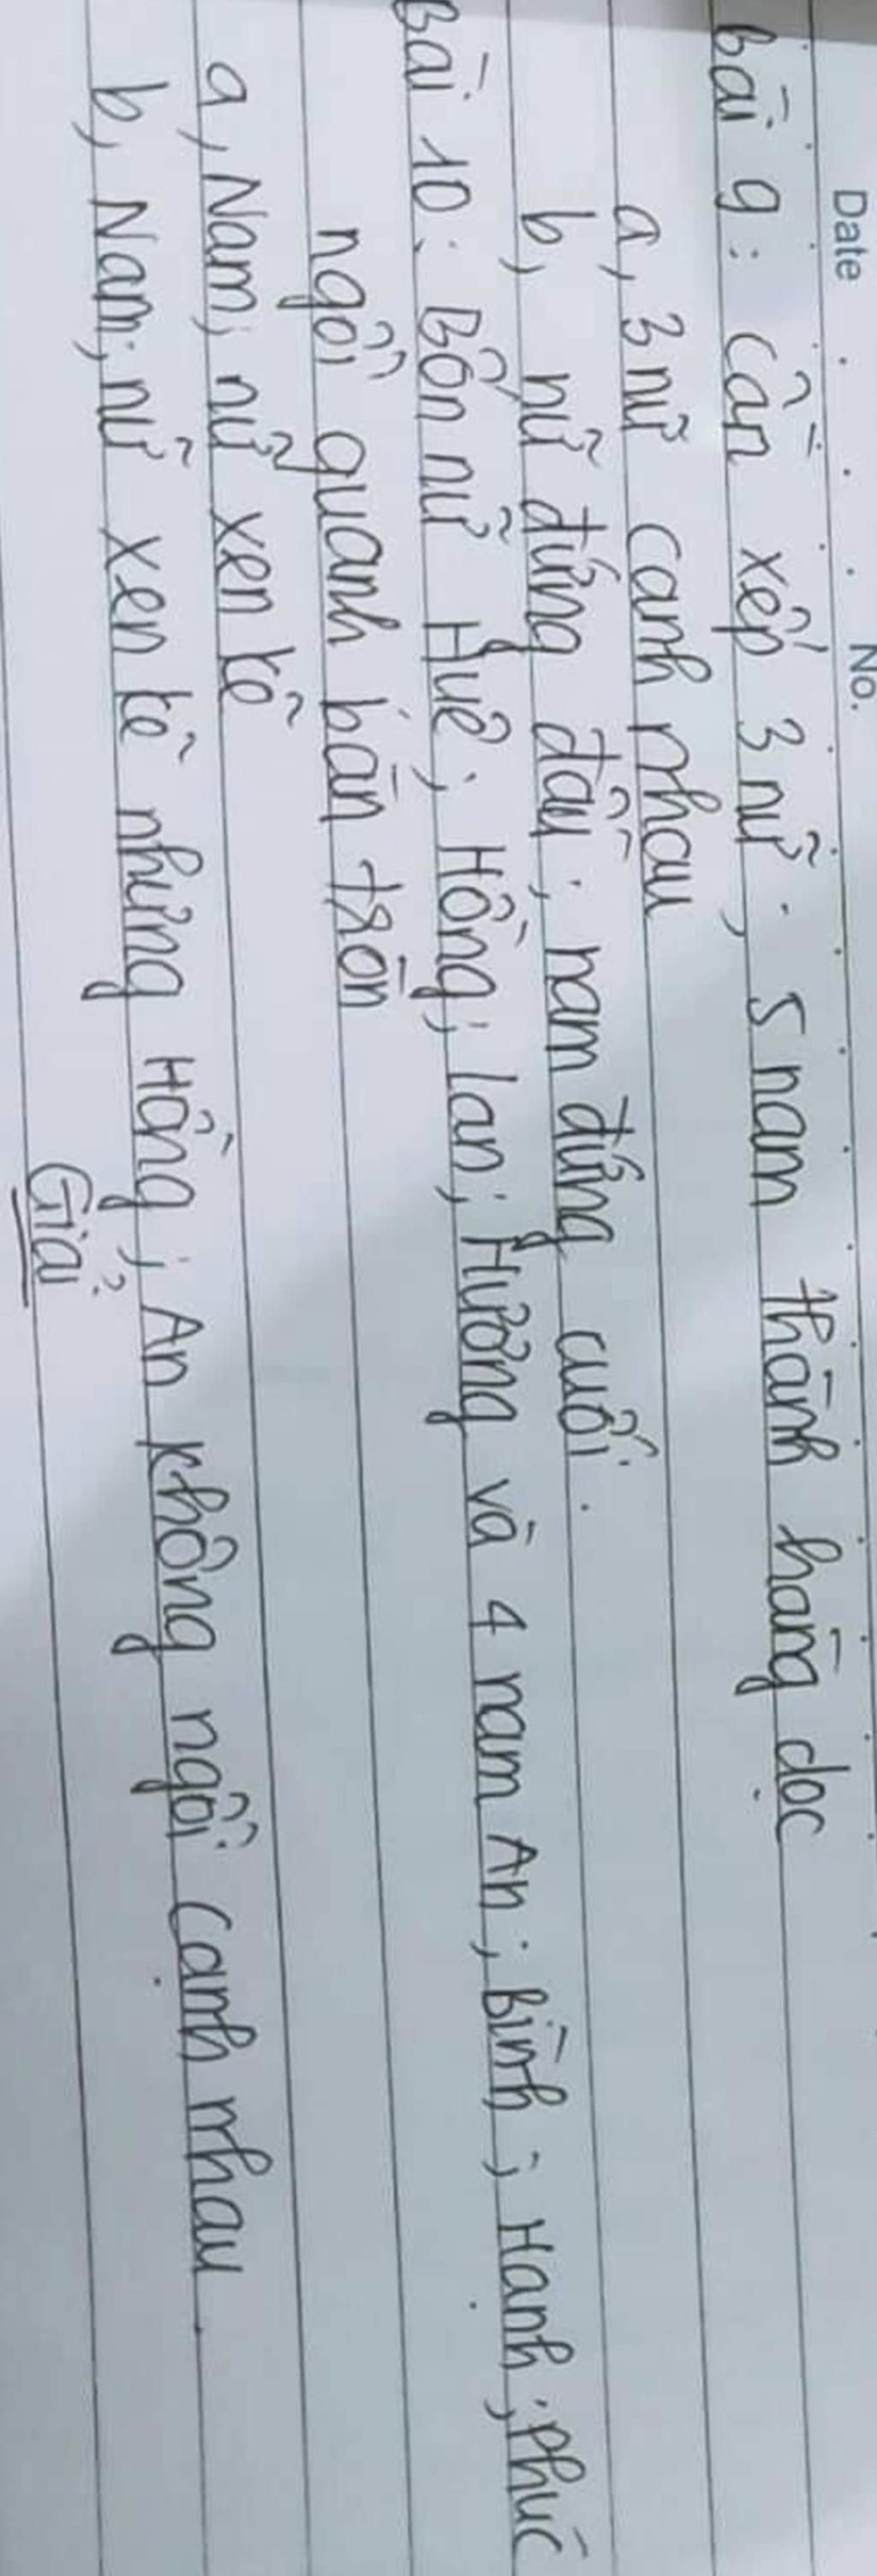 Date No.
Bài 9: Cần xếp 3 nữ; 5 nam thành hàng dọc
a, 3 nữ cạnh nhau
b, nữ đứng đầu; nam đứng cuối.
Bài 10: Bốn nữ Huê; Hồng; lan; Hương và 4 nam An; Bình; Hạnh; Phúc
ngồi quanh bàn tròn
a, Nam; nữ xen kẽ
b, Nam; nữ xen kẽ nhưng Hồng; An không ngồi cạnh nhau.
Giải